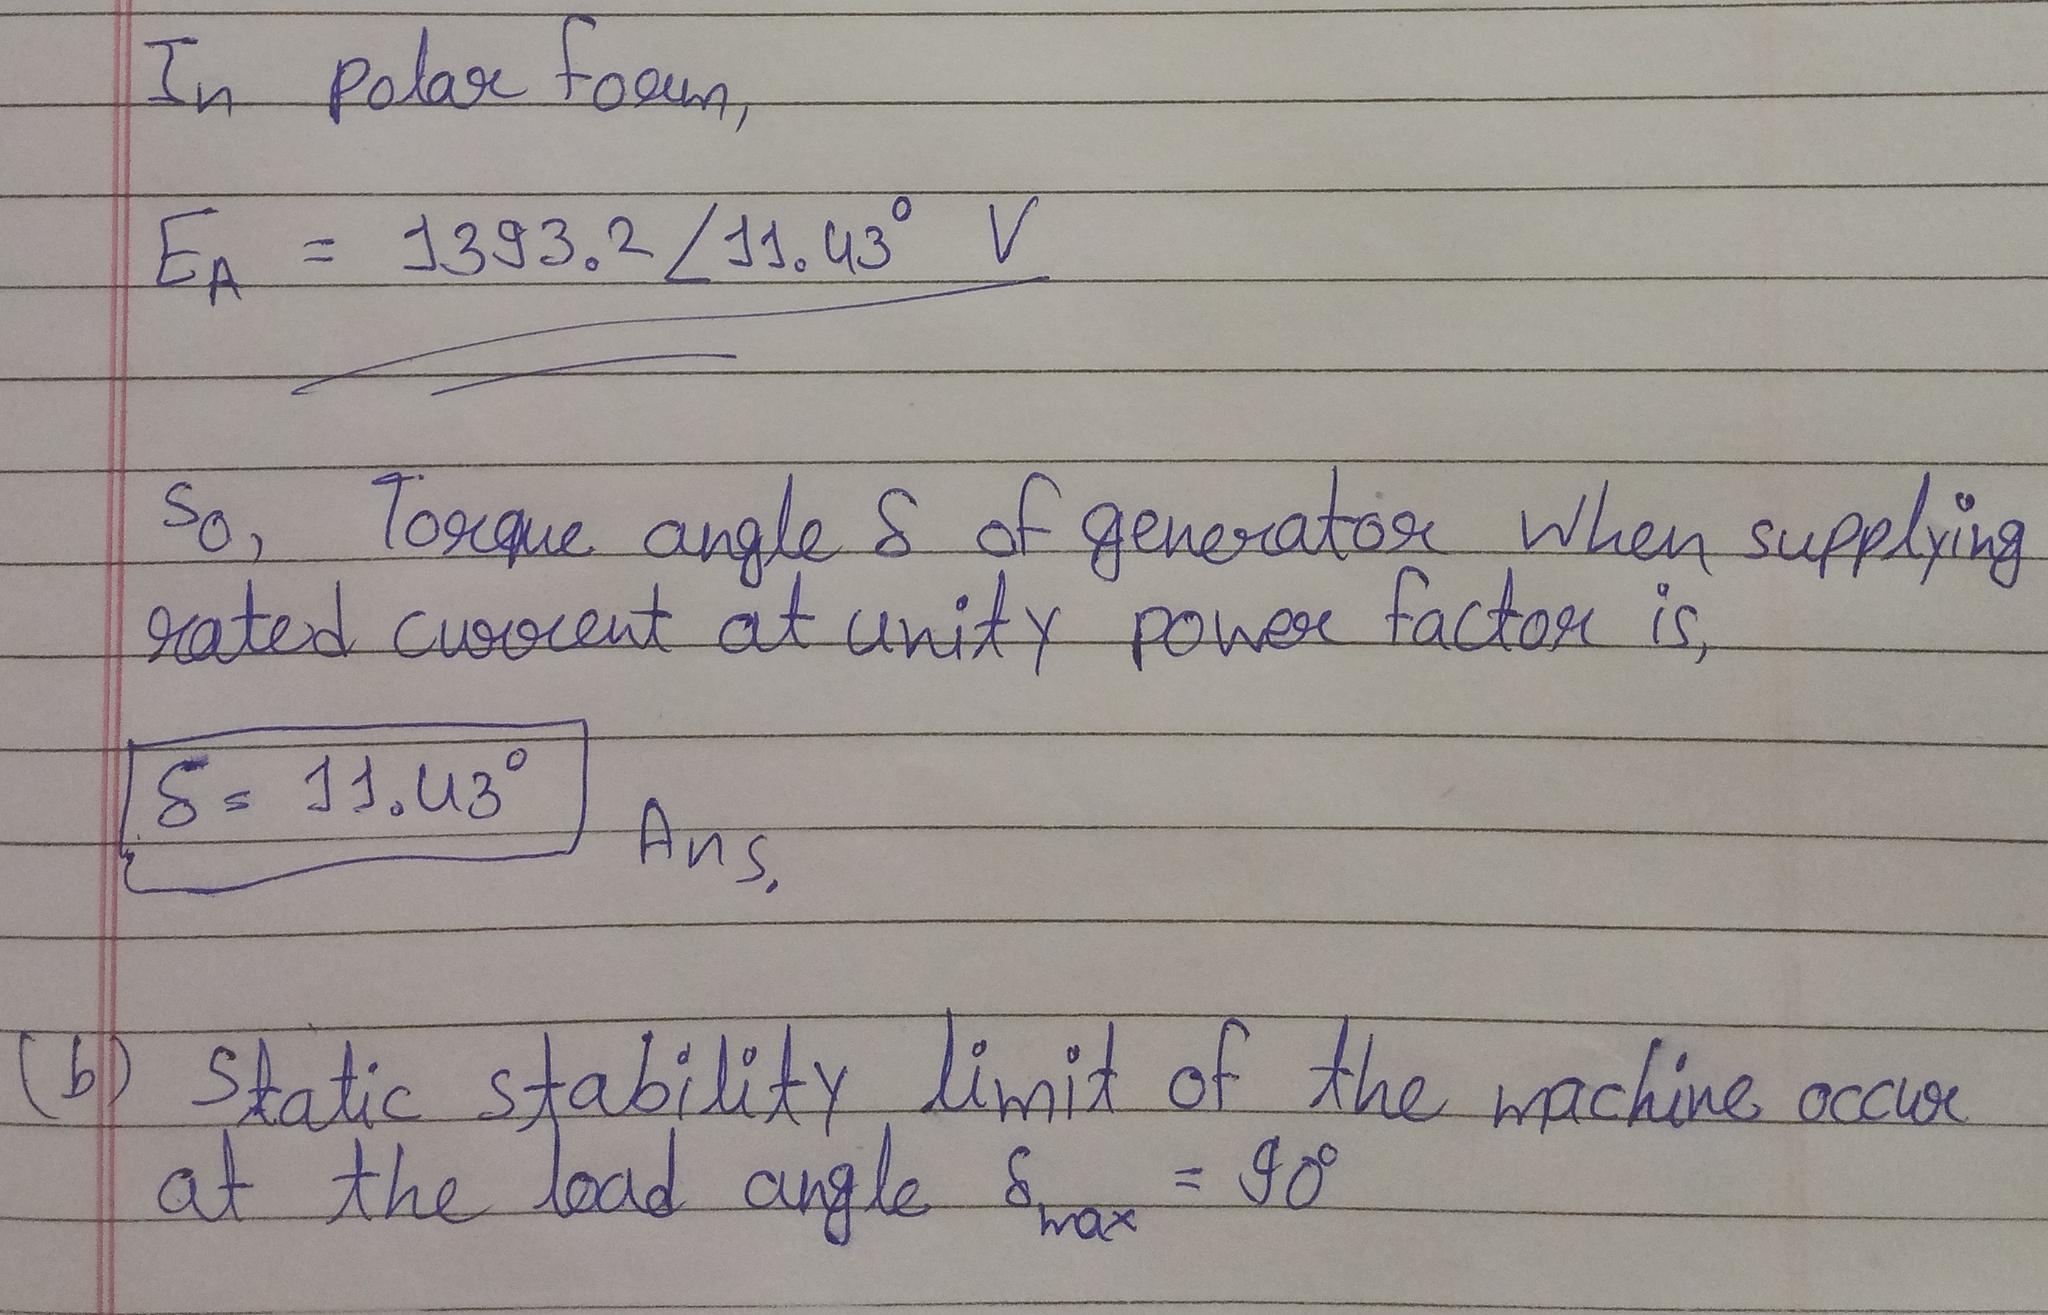 In polar form,
E_A = 1393.2∠11.43° V
So, Torque angle δ of generator when supplying
rated current at unity power factor is,
δ = 11.43°
Ans.
(b) Static stability limit of the machine occur
at the load angle δ_max = 90°